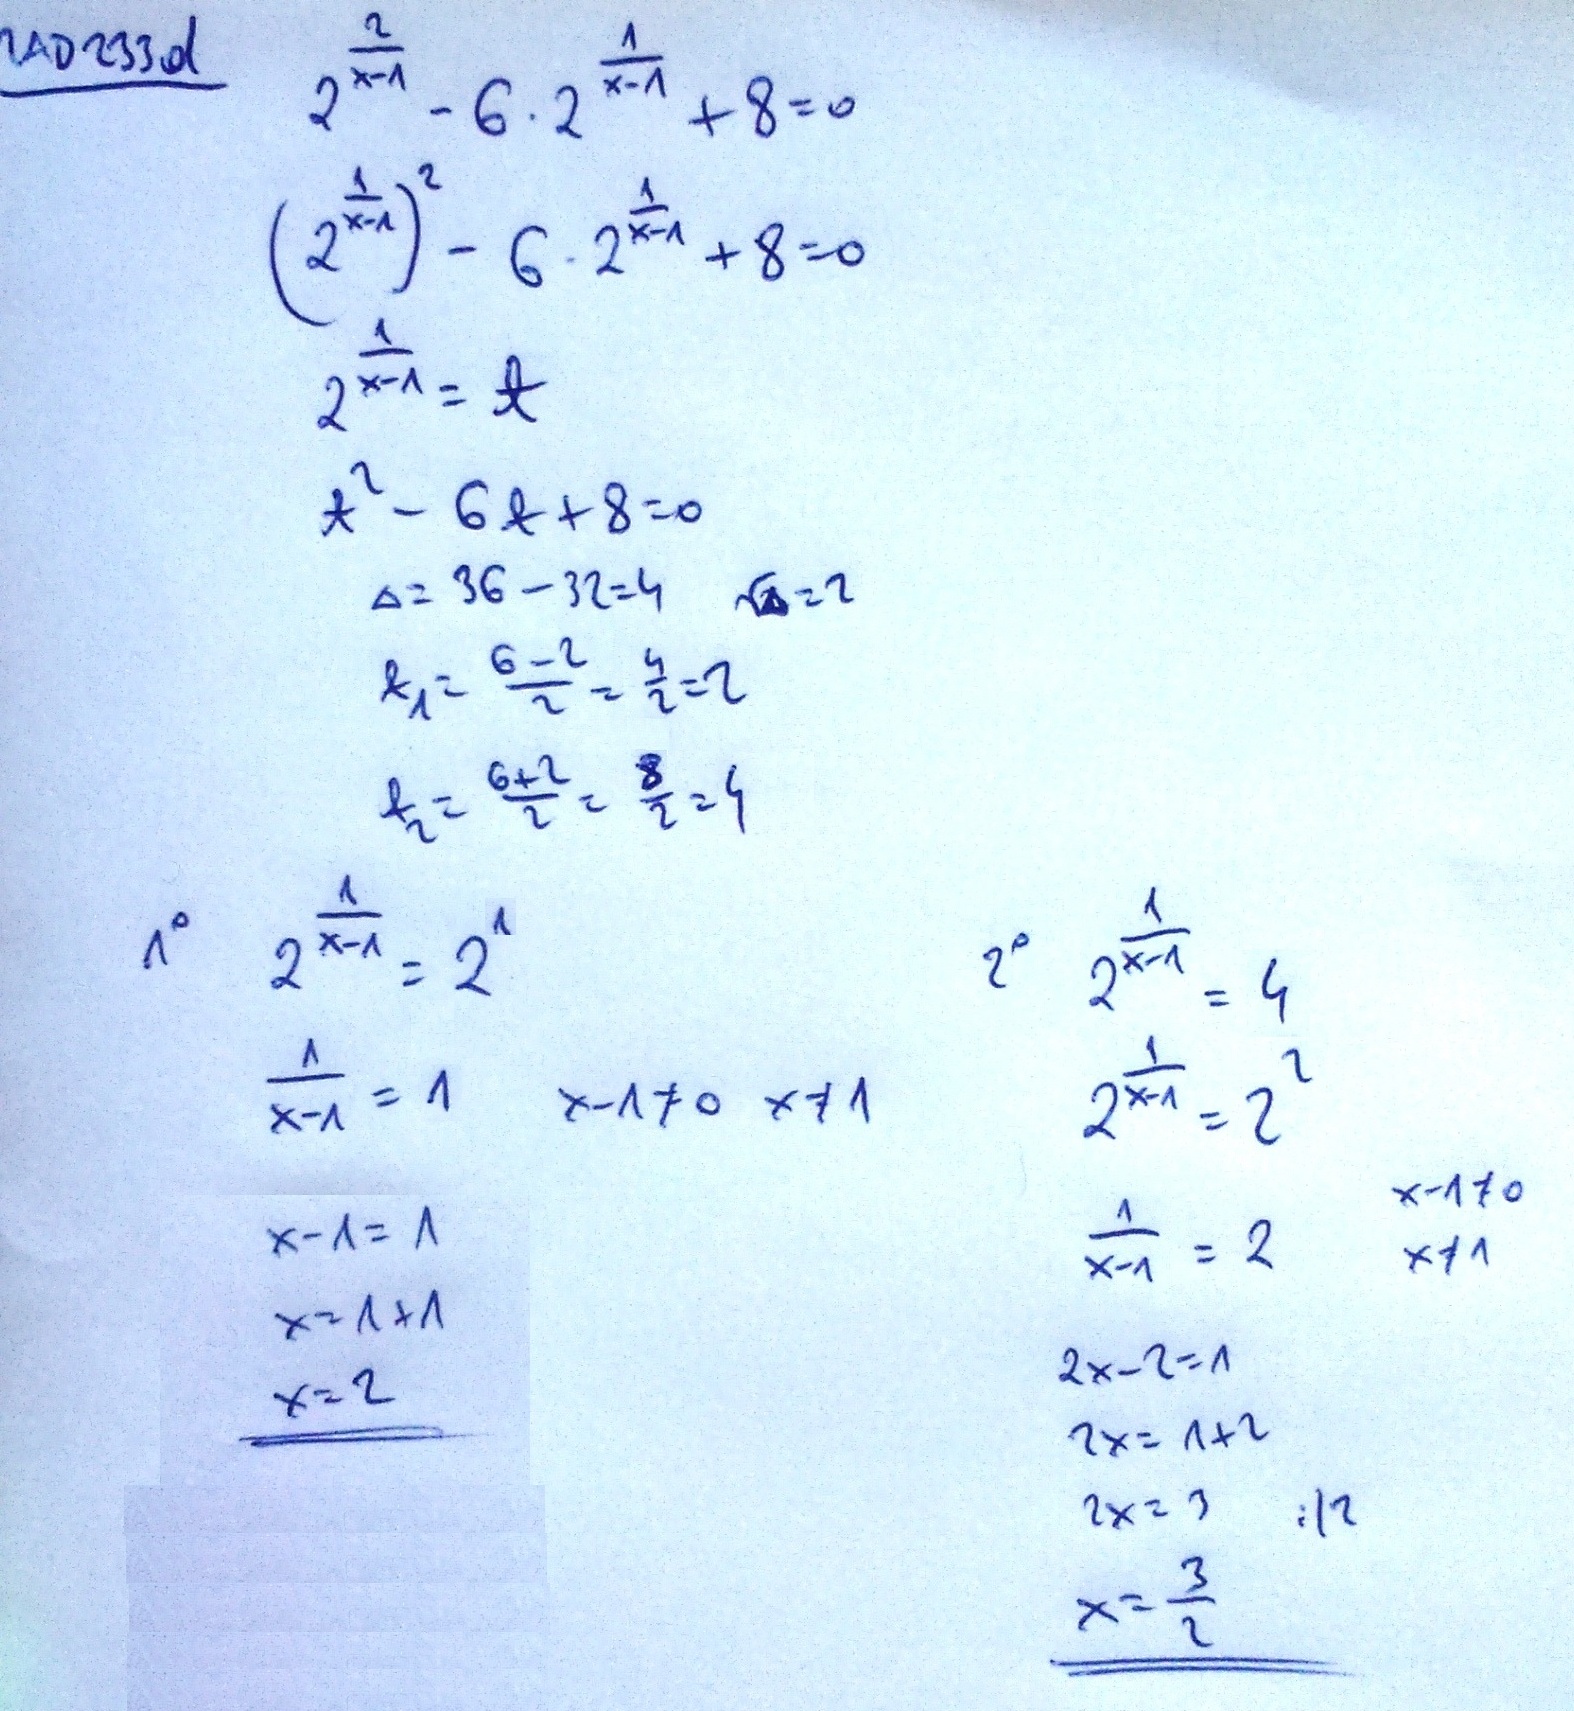 ZAD 233d
2^{\frac{2}{x-1}} - 6 \cdot 2^{\frac{1}{x-1}} + 8 = 0
(2^{\frac{1}{x-1}})^2 - 6 \cdot 2^{\frac{1}{x-1}} + 8 = 0
2^{\frac{1}{x-1}} = t
t^2 - 6t + 8 = 0
Δ = 36 - 32 = 4   √Δ = 2
t_1 = \frac{6-2}{2} = \frac{4}{2} = 2
t_2 = \frac{6+2}{2} = \frac{8}{2} = 4
1° 2^{\frac{1}{x-1}} = 2^1
\frac{1}{x-1} = 1   x-1 ≠ 0   x ≠ 1
x-1 = 1
x = 1+1
x = 2
2° 2^{\frac{1}{x-1}} = 4
2^{\frac{1}{x-1}} = 2^2
\frac{1}{x-1} = 2
x-1 ≠ 0
x ≠ 1
2x-2 = 1
2x = 1+2
2x = 3   :/2
x = \frac{3}{2}